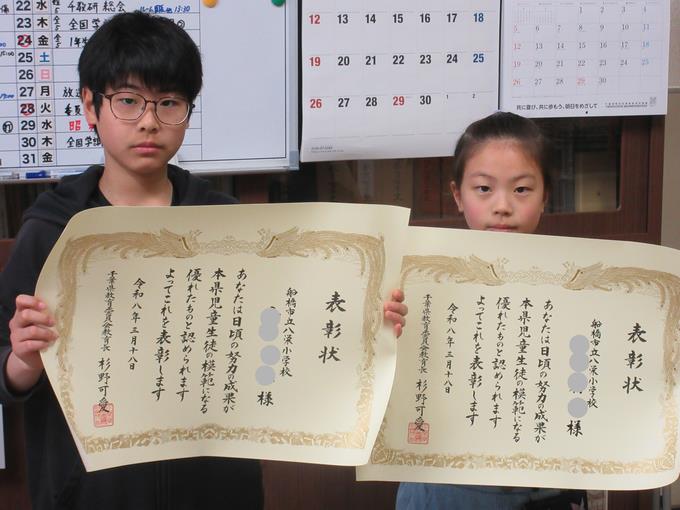 22 水 千教研 総会
23 木 全国学
24 金 1年生
25 土
26 日
27 月 放送
28 火 委員
29 水 昭
30 木 全国学
31 金
12 13 14 15 16 17 18
19 20 21 22 23 24 25
26 27 28 29 30 1 2
共に喜び、共に歩もう、明日をめざして
表彰状
船橋市立八栄小学校
様
あなたは日頃の努力の成果が
本県児童生徒の模範になる
優れたものと認められます
よってこれを表彰します
令和八年三月十八日
千葉県教育委員会教育長 杉野可愛
表彰状
船橋市立八栄小学校
様
あなたは日頃の努力の成果が
本県児童生徒の模範になる
優れたものと認められます
よってこれを表彰します
令和八年三月十八日
千葉県教育委員会教育長 杉野可愛